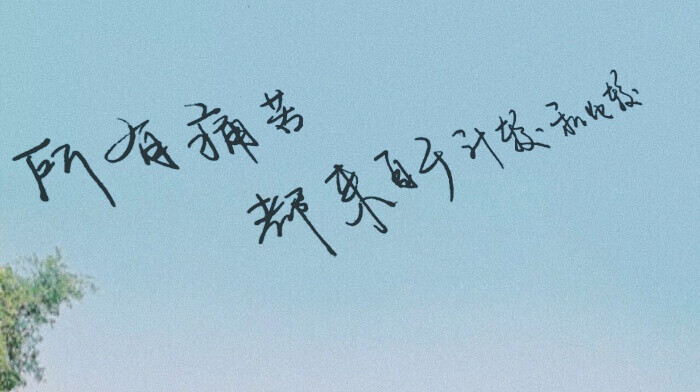 所有痛苦
都来自于计较和比较